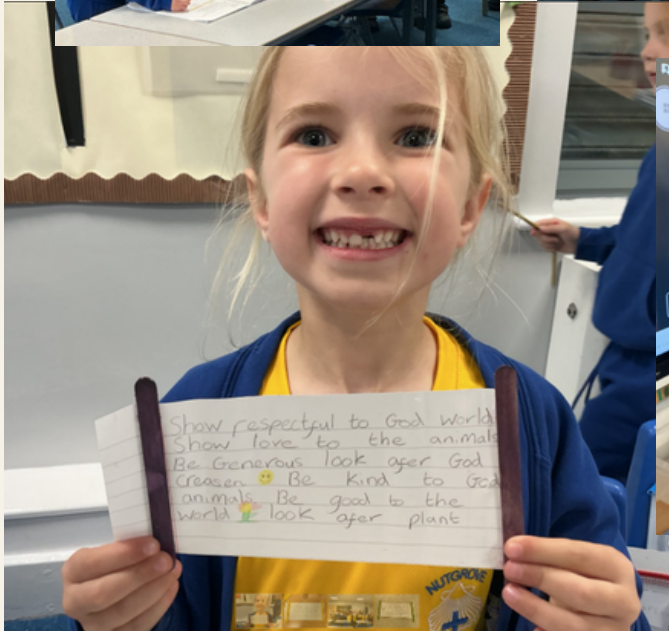 Show respectful to God world
Show love to the animals
Be Generous look afer God
creasen Be kind to God
animals Be good to the
world look afer plant
NUTGROVE